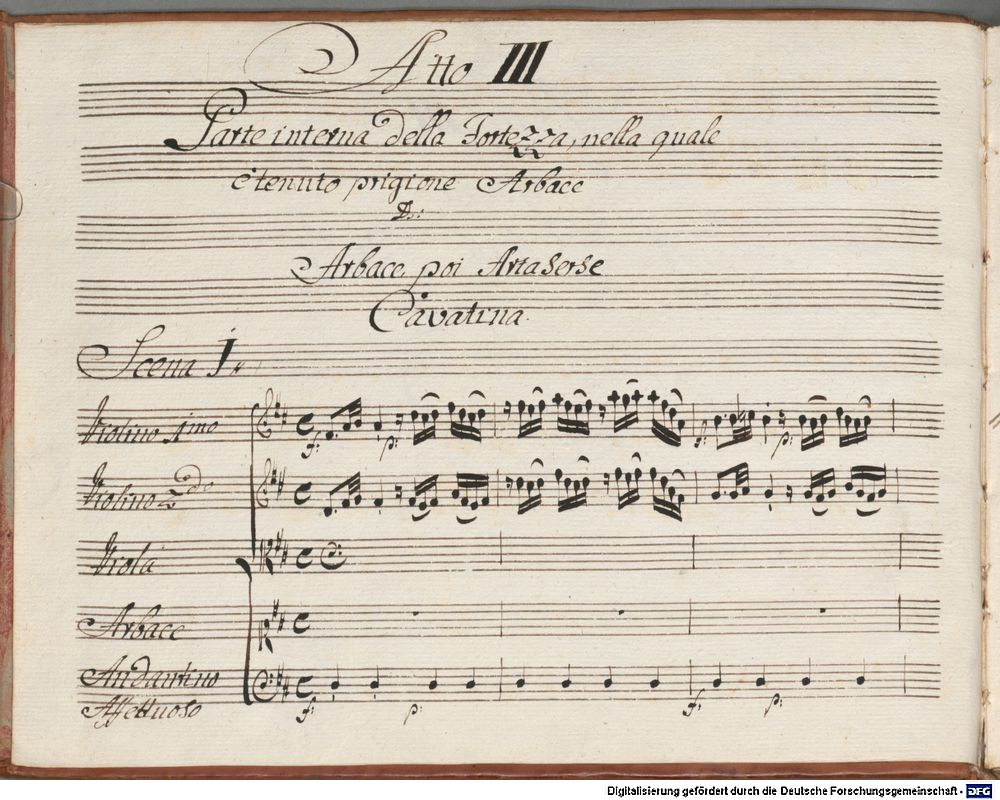 Atto III
Parte interna della Fortezza, nella quale
è tenuto prigione Arbace
Arbace poi Artaserse
Cavatina.
Scena I.
Violino 1mo
Violino 2do
Viola
Arbace
Andantino
Affettuoso
f: p: f: p:
f: p: f: p:
Digitalisierung gefördert durch die Deutsche Forschungsgemeinschaft - DFG